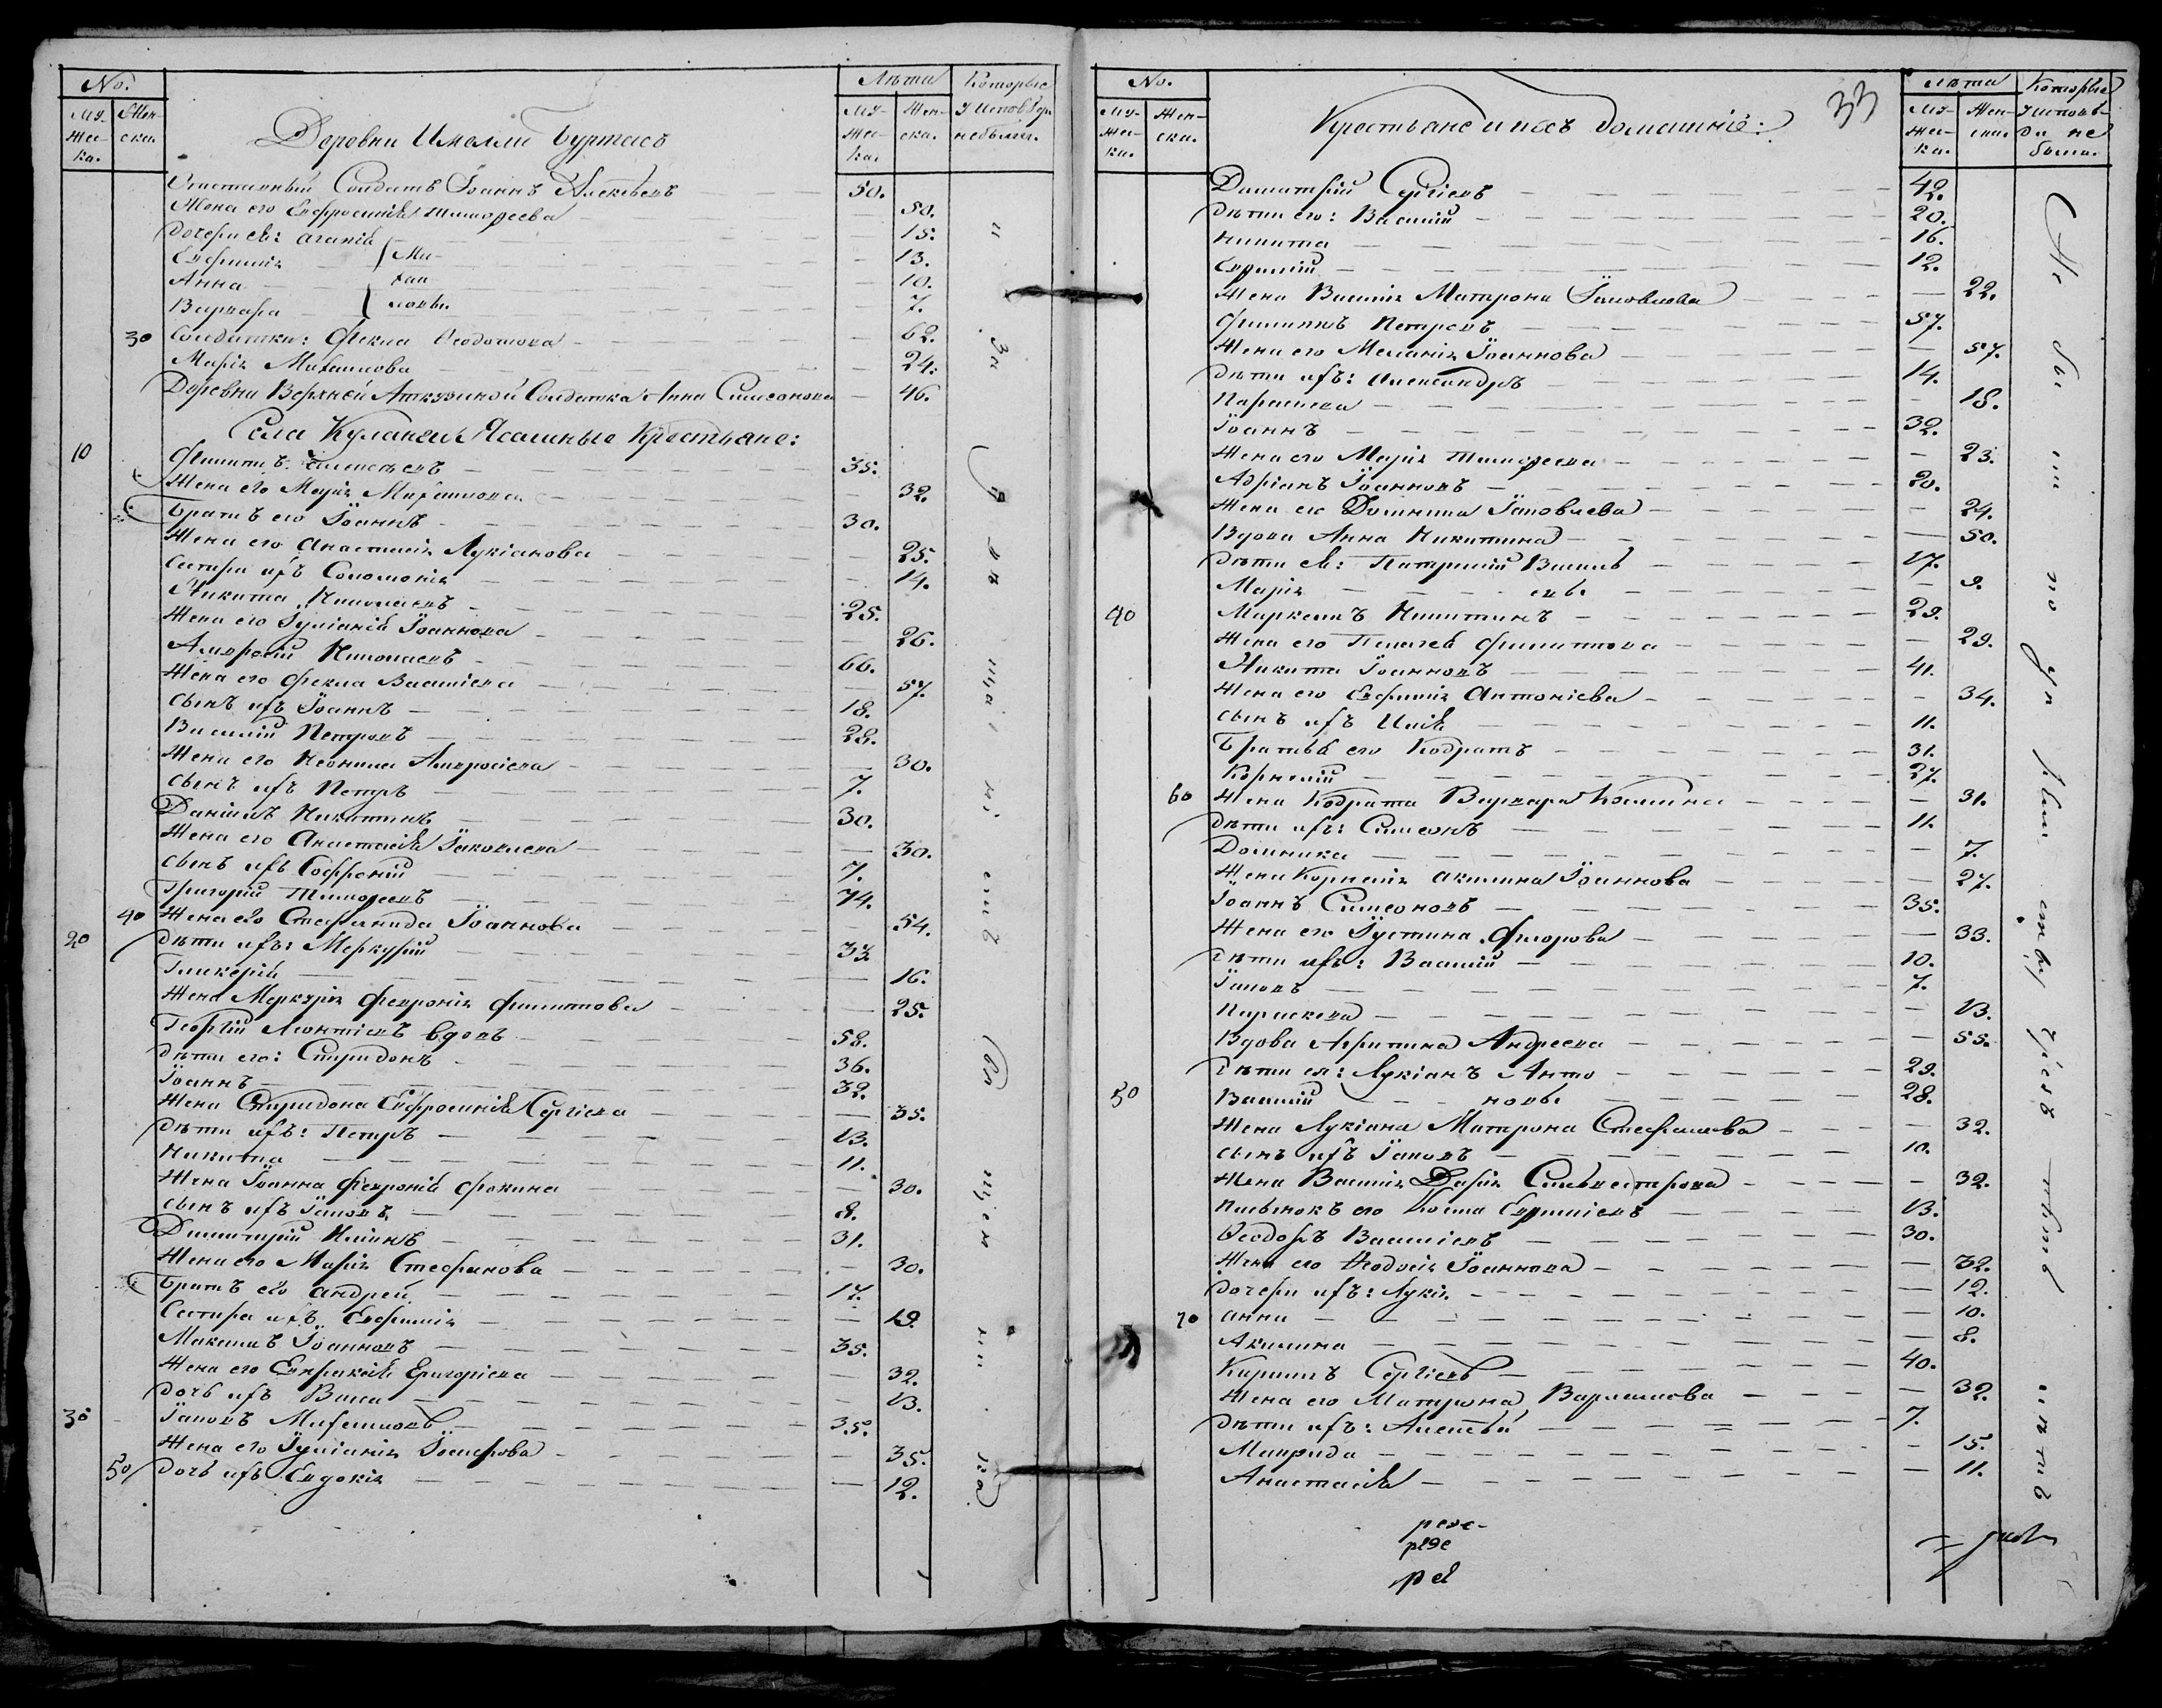 No.
Лѣта
Которые
Му-
жес-
ка.
Жен-
ска.
Му-
жес-
ка.
Жен-
ска.
у исповѣди
небыли.
Деревни Имелли Буртасъ
Отставный Солдатъ Іоаннъ Алексѣевъ — 50.
Жена его Евфросинія Тимоѳеева — 50.
Дочери ея: Агапія — 15.
Евфимія — Ми- 13.
Анна — хаи 10.
Варвара — ловы 7.
30 Солдатки: Фекла Ѳеодотова — 62.
Марія Михаилова — 24.
Деревни Верхней Аткузиной Солдатка Анна Симеонова — 46.
Села Куланги Ясашные Крестьяне:
10 Филиппъ Алексѣевъ — 35.
Жена его Марія Михаилова — 32.
Братъ его Іоаннъ — 30.
Жена его Анастасія Лукіанова — 25.
Сестра ихъ Соломонія — 14.
Никита Николаевъ — 25.
Жена его Іуліанія Іоаннова — 26.
Амвросій Николаевъ — 66.
Жена его Фекла Василіева — 57.
Сынъ ихъ Іоаннъ — 18.
Василій Петровъ — 28.
Жена его Неонила Амвросіева — 30.
Сынъ ихъ Петръ — 7.
Даніилъ Никитинъ — 30.
Жена его Анастасія Іаковлева — 30.
Сынъ ихъ Софроній — 7.
Григорій Тимоѳеевъ — 74.
40 Жена его Стефанида Іоаннова — 54.
20 Дѣти ихъ: Меркурій — 33.
Гликерія — 16.
Жена Меркурія Февронія Филиппова — 25.
Георгій Леонтіевъ вдовъ — 58.
Дѣти его: Спиридонъ — 36.
Іоаннъ — 32.
Жена Спиридона Евфросинія Сергіева — 35.
Дѣти ихъ: Петръ — 13.
Никита — 11.
Жена Іоанна Февронія Фокина — 30.
Сынъ ихъ Іаковъ — 8.
Димитрій Ильинъ — 31.
Жена его Марія Стефанова — 30.
Братъ его Андрей — 17.
Сестра ихъ Евфимія — 19.
Максимъ Іоанновъ — 35.
Жена его Евпраксія Григоріева — 32.
Дочь ихъ Васса — 13.
30 Іаковъ Михаиловъ — 35.
Жена его Іуліанія Іосифова — 35.
50 Дочь ихъ Евдокія — 12.
No.
Лѣта
Которые
Му-
жес-
ка.
Жен-
ска.
Му-
жес-
ка.
Жен-
ска.
у исповѣ-
ди не
были.
33
Крестьяне и ихъ домашніе:
Димитрій Сергіевъ — 42.
Дѣти его: Василій — 20.
Никита — 16.
Евфимій — 12.
Жена Василія Матрона Іаковлева — 22.
Филиппъ Петровъ — 57.
Жена его Меланія Іоаннова — 57.
Дѣти ихъ: Александръ — 14.
Параскева — 18.
Іоаннъ — 32.
Жена его Марія Тимоѳеева — 23.
Адріанъ Іоанновъ — 20.
Жена его Домника Іаковлева — 24.
Вдова Анна Никитина — 50.
Дѣти ея: Патрикій Василь — 17.
Марія — евы — 9.
40 Маркеллъ Никитинъ — 29.
Жена его Пелагея Филиппова — 29.
Никита Іоанновъ — 41.
Жена его Евфимія Антоніева — 34.
Сынъ ихъ Илія — 11.
Братья его Кодратъ — 31.
Корнилій — 27.
60 Жена Кодрата Варвара Космина — 31.
Дѣти ихъ: Симеонъ — 11.
Домника — 7.
Жена Корнилія Акилина Іоаннова — 27.
Іоаннъ Симеоновъ — 35.
Жена его Іустина Флорова — 33.
Дѣти ихъ: Василій — 10.
Іаковъ — 7.
Параскева — 13.
Вдова Агрипина Андреева — 55.
Дѣти ея: Лукіанъ Анто — 29.
50 Василій — новы — 28.
Жена Лукіана Матрона Стефанова — 32.
Сынъ ихъ Іаковъ — 10.
Жена Василія Дарія Сильвестрова — 32.
Племянокъ его Косма Евфиміевъ — 13.
Ѳеодоръ Василіевъ — 30.
Жена его Ѳеодосія Іоаннова — 32.
Дочери ихъ: Лукія — 12.
70 Анна — 10.
Акилина — 8.
Кириллъ Сергіевъ — 40.
Жена его Матрона Варлаамова — 32.
Дѣти ихъ: Алексѣй — 7.
Мавра — 15.
Анастасія — 11.